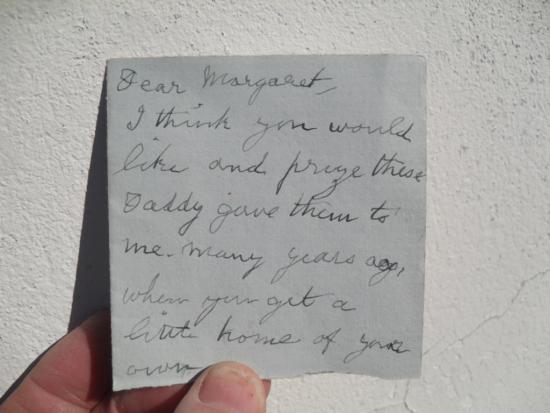 Dear Margaret,
I think you would
like and prize these
Daddy gave them to
me. many years ago,
when you get a
little home of your
own